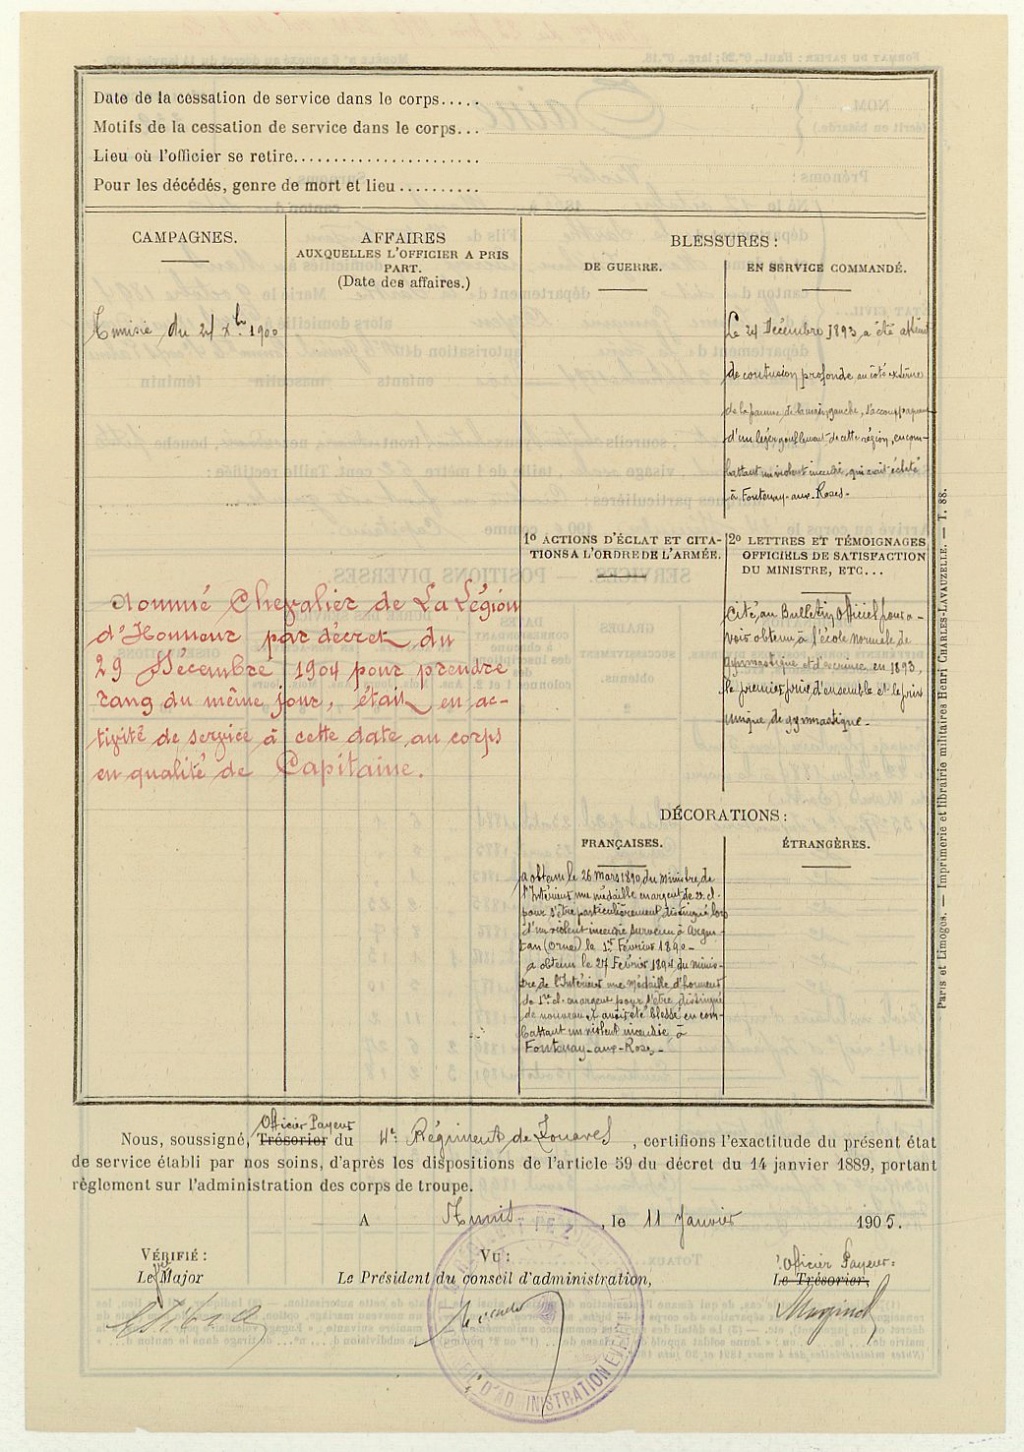 Date de la cessation de service dans le corps.....
Motifs de la cessation de service dans le corps...
Lieu où l'officier se retire......................
Pour les décédés, genre de mort et lieu ..........
CAMPAGNES.
Tunisie, du 24 Xbre 1900
AFFAIRES
AUXQUELLES L'OFFICIER A PRIS
PART.
(Date des affaires.)
BLESSURES :
DE GUERRE.
EN SERVICE COMMANDÉ.
Le 24 Décembre 1893, a été atteint
de contusion profonde au côté externe
de la paume de la main gauche, s'accompagnant
d'un léger gonflement de cette région, en com-
battant un violent incendie, qui avait éclaté
à Fontenay-aux-Roses.
Nommé Chevalier de La Légion
d'Honneur par décret du
29 Décembre 1904 pour prendre
rang du même jour, était en ac-
tivité de service à cette date au corps
en qualité de Capitaine.
1º ACTIONS D'ÉCLAT ET CITA-
TIONS A L'ORDRE DE L'ARMÉE.
2º LETTRES ET TÉMOIGNAGES
OFFICIELS DE SATISFACTION
DU MINISTRE, ETC...
Cité au Bulletin Officiel pour a-
voir obtenu à l'école normale de
gymnastique et d'escrime en 1893,
le premier prix d'ensemble et le prix
unique de gymnastique.
DÉCORATIONS :
FRANÇAISES.
a obtenu le 26 Mars 1890, du Ministre de
l'Intérieur une médaille en argent de 2e cl.
pour s'être particulièrement distingué lors
d'un violent incendie survenu à Argen-
tan (Orne) le 1er Février 1890.
a obtenu le 27 Février 1894 du minis-
tre de l'Intérieur une médaille d'honneur
de 1re cl. en argent pour s'être distingué
de nouveau et avoir été blessé en com-
battant un violent incendie, à
Fontenay-aux-Roses.
ÉTRANGÈRES.
Paris et Limoges. — Imprimerie et librairie militaires Henri CHARLES-LAVAUZELLE. — T. 88.
Officier Payeur
Nous, soussigné, Trésorier du 4e Régiment de Zouaves, certifions l'exactitude du présent état
de service établi par nos soins, d'après les dispositions de l'article 59 du décret du 14 janvier 1889, portant
règlement sur l'administration des corps de troupe.
A Tunis, le 11 Janvier 1905.
VÉRIFIÉ :
Le Major
VU :
Le Président du conseil d'administration,
l'Officier Payeur
Le Trésorier,
D'ADMINISTRATION